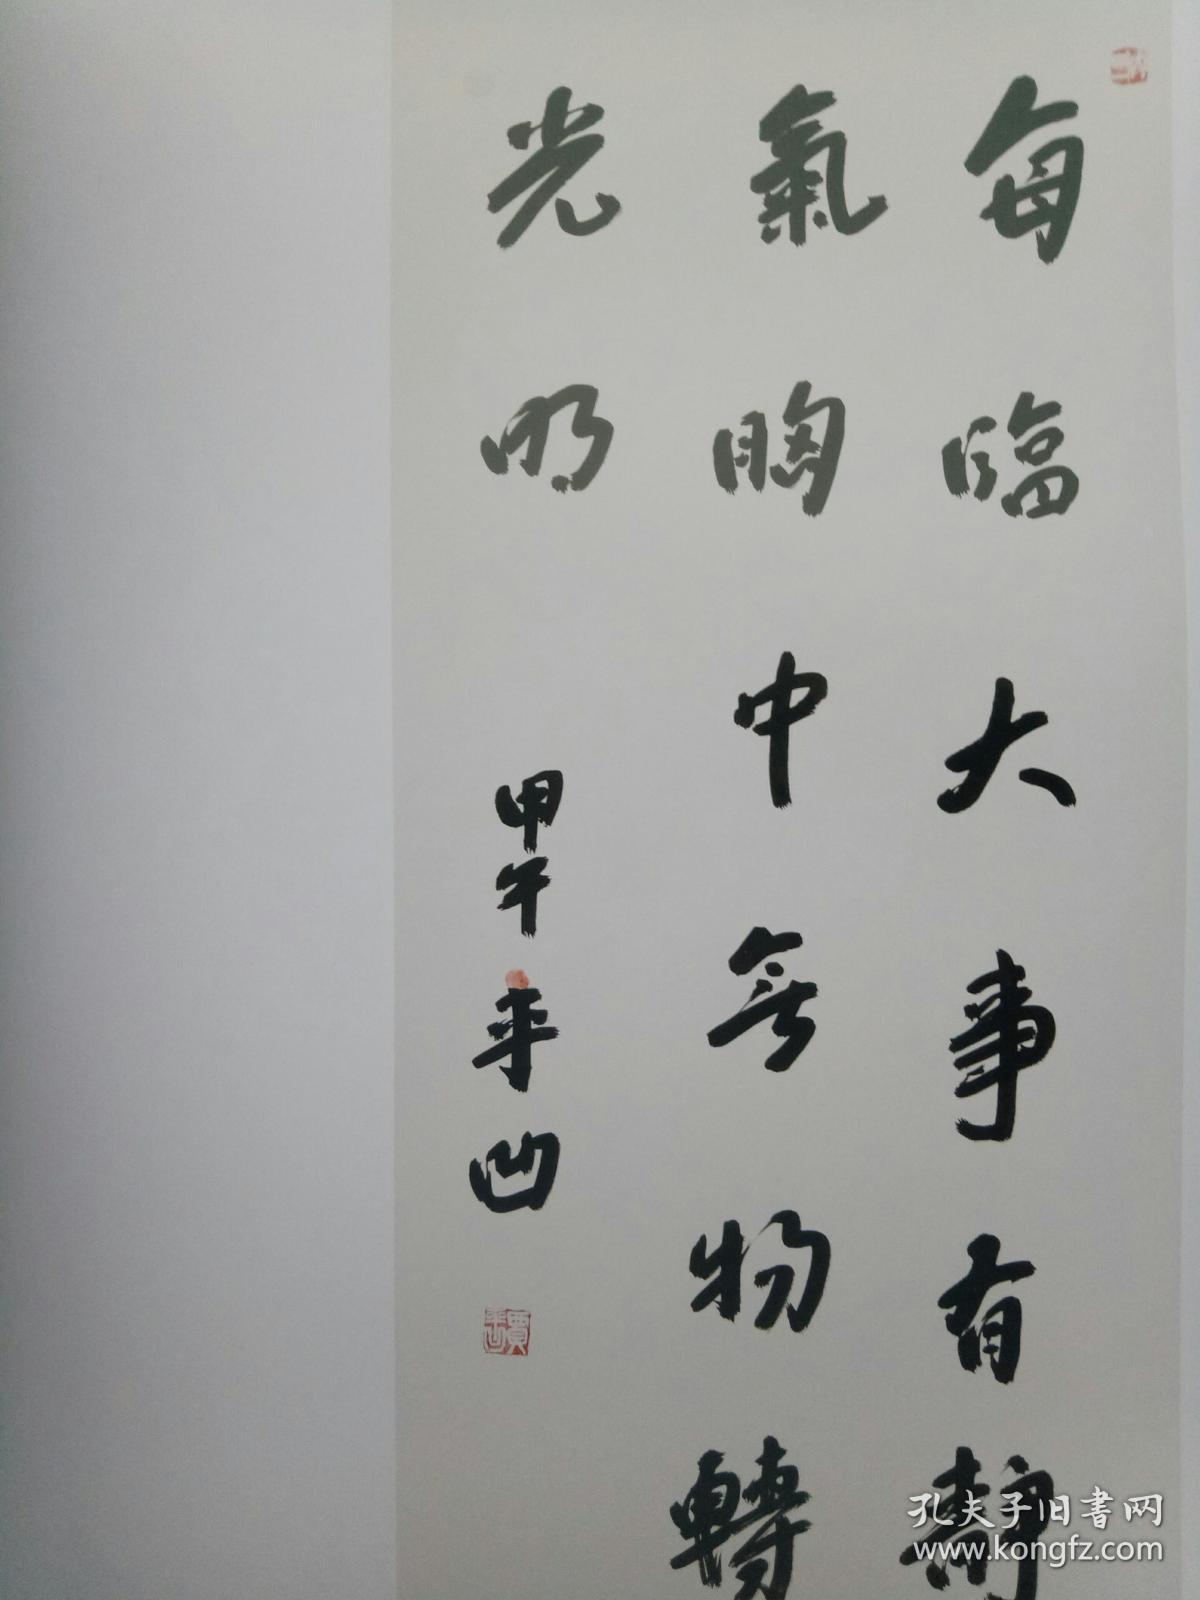 每臨大事有靜
氣胸中無物轉
光明
甲午 平凹
賈平凹
孔夫子旧书网
www.kongfz.com